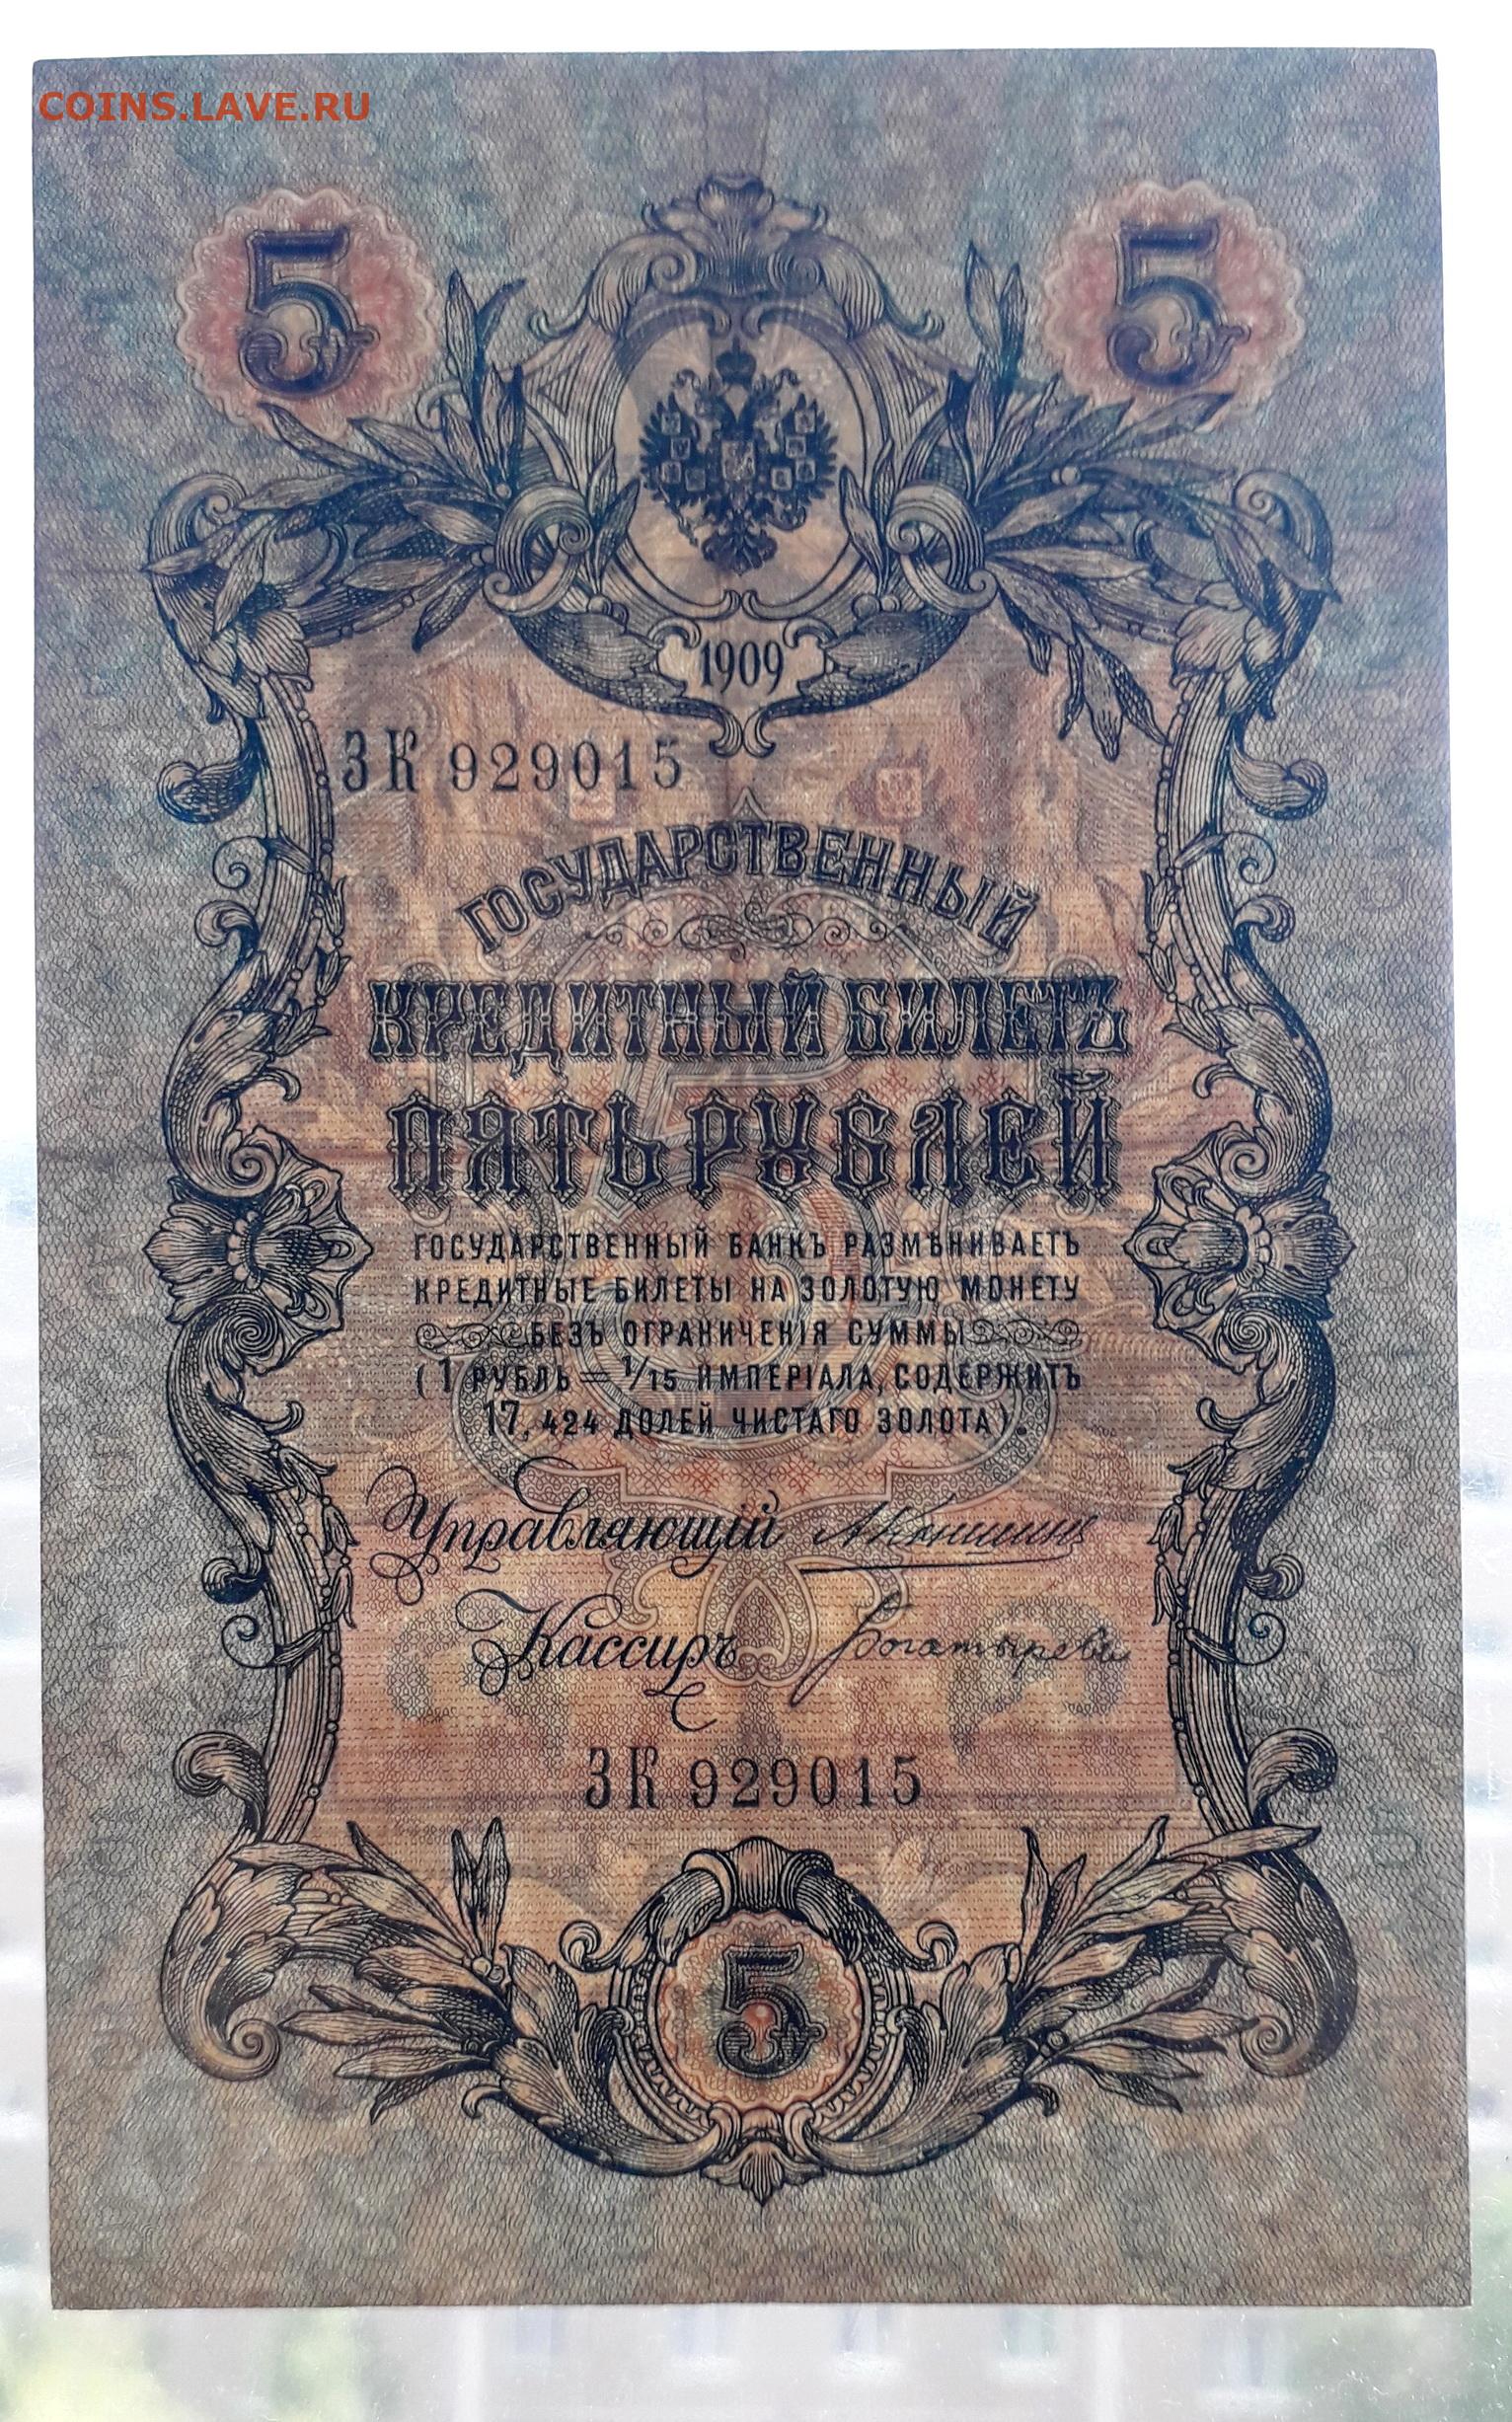 COINS.LAVE.RU
5 5
1909
ЗК 929015
ГОСУДАРСТВЕННЫЙ
КРЕДИТНЫЙ БИЛЕТЪ
ПЯТЬ РУБЛЕЙ
ГОСУДАРСТВЕННЫЙ БАНКЪ РАЗМѢНИВАЕТЪ
КРЕДИТНЫЕ БИЛЕТЫ НА ЗОЛОТУЮ МОНЕТУ
БЕЗЪ ОГРАНИЧЕНІЯ СУММЫ
(1 РУБЛЬ = 1/15 ИМПЕРІАЛА, СОДЕРЖИТЪ
17,424 ДОЛЕЙ ЧИСТАГО ЗОЛОТА).
Управляющій А Коншинъ
Кассиръ Богатыревъ
ЗК 929015
5